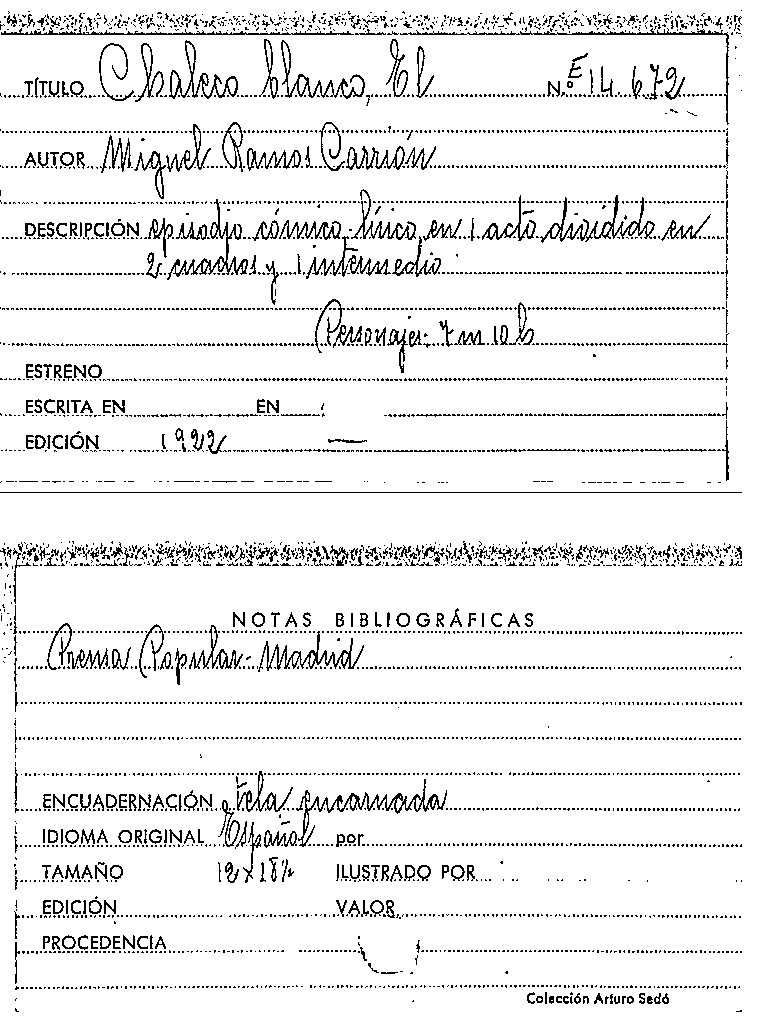 TÍTULO Chaleco blanco, El N.º E 14.672
AUTOR Miguel Ramos Carrión
DESCRIPCIÓN episodio cómico-lírico, en 1 acto dividido en
2 cuadros y 1 intermedio
Personajes- 7 m 10 h
ESTRENO
ESCRITA EN EN
EDICIÓN 1922 —
NOTAS BIBLIOGRÁFICAS
Prensa Popular- Madrid
ENCUADERNACIÓN tela encarnada
IDIOMA ORIGINAL Español por
TAMAÑO 12 x 18½ ILUSTRADO POR
EDICIÓN VALOR
PROCEDENCIA
Colección Arturo Sedó